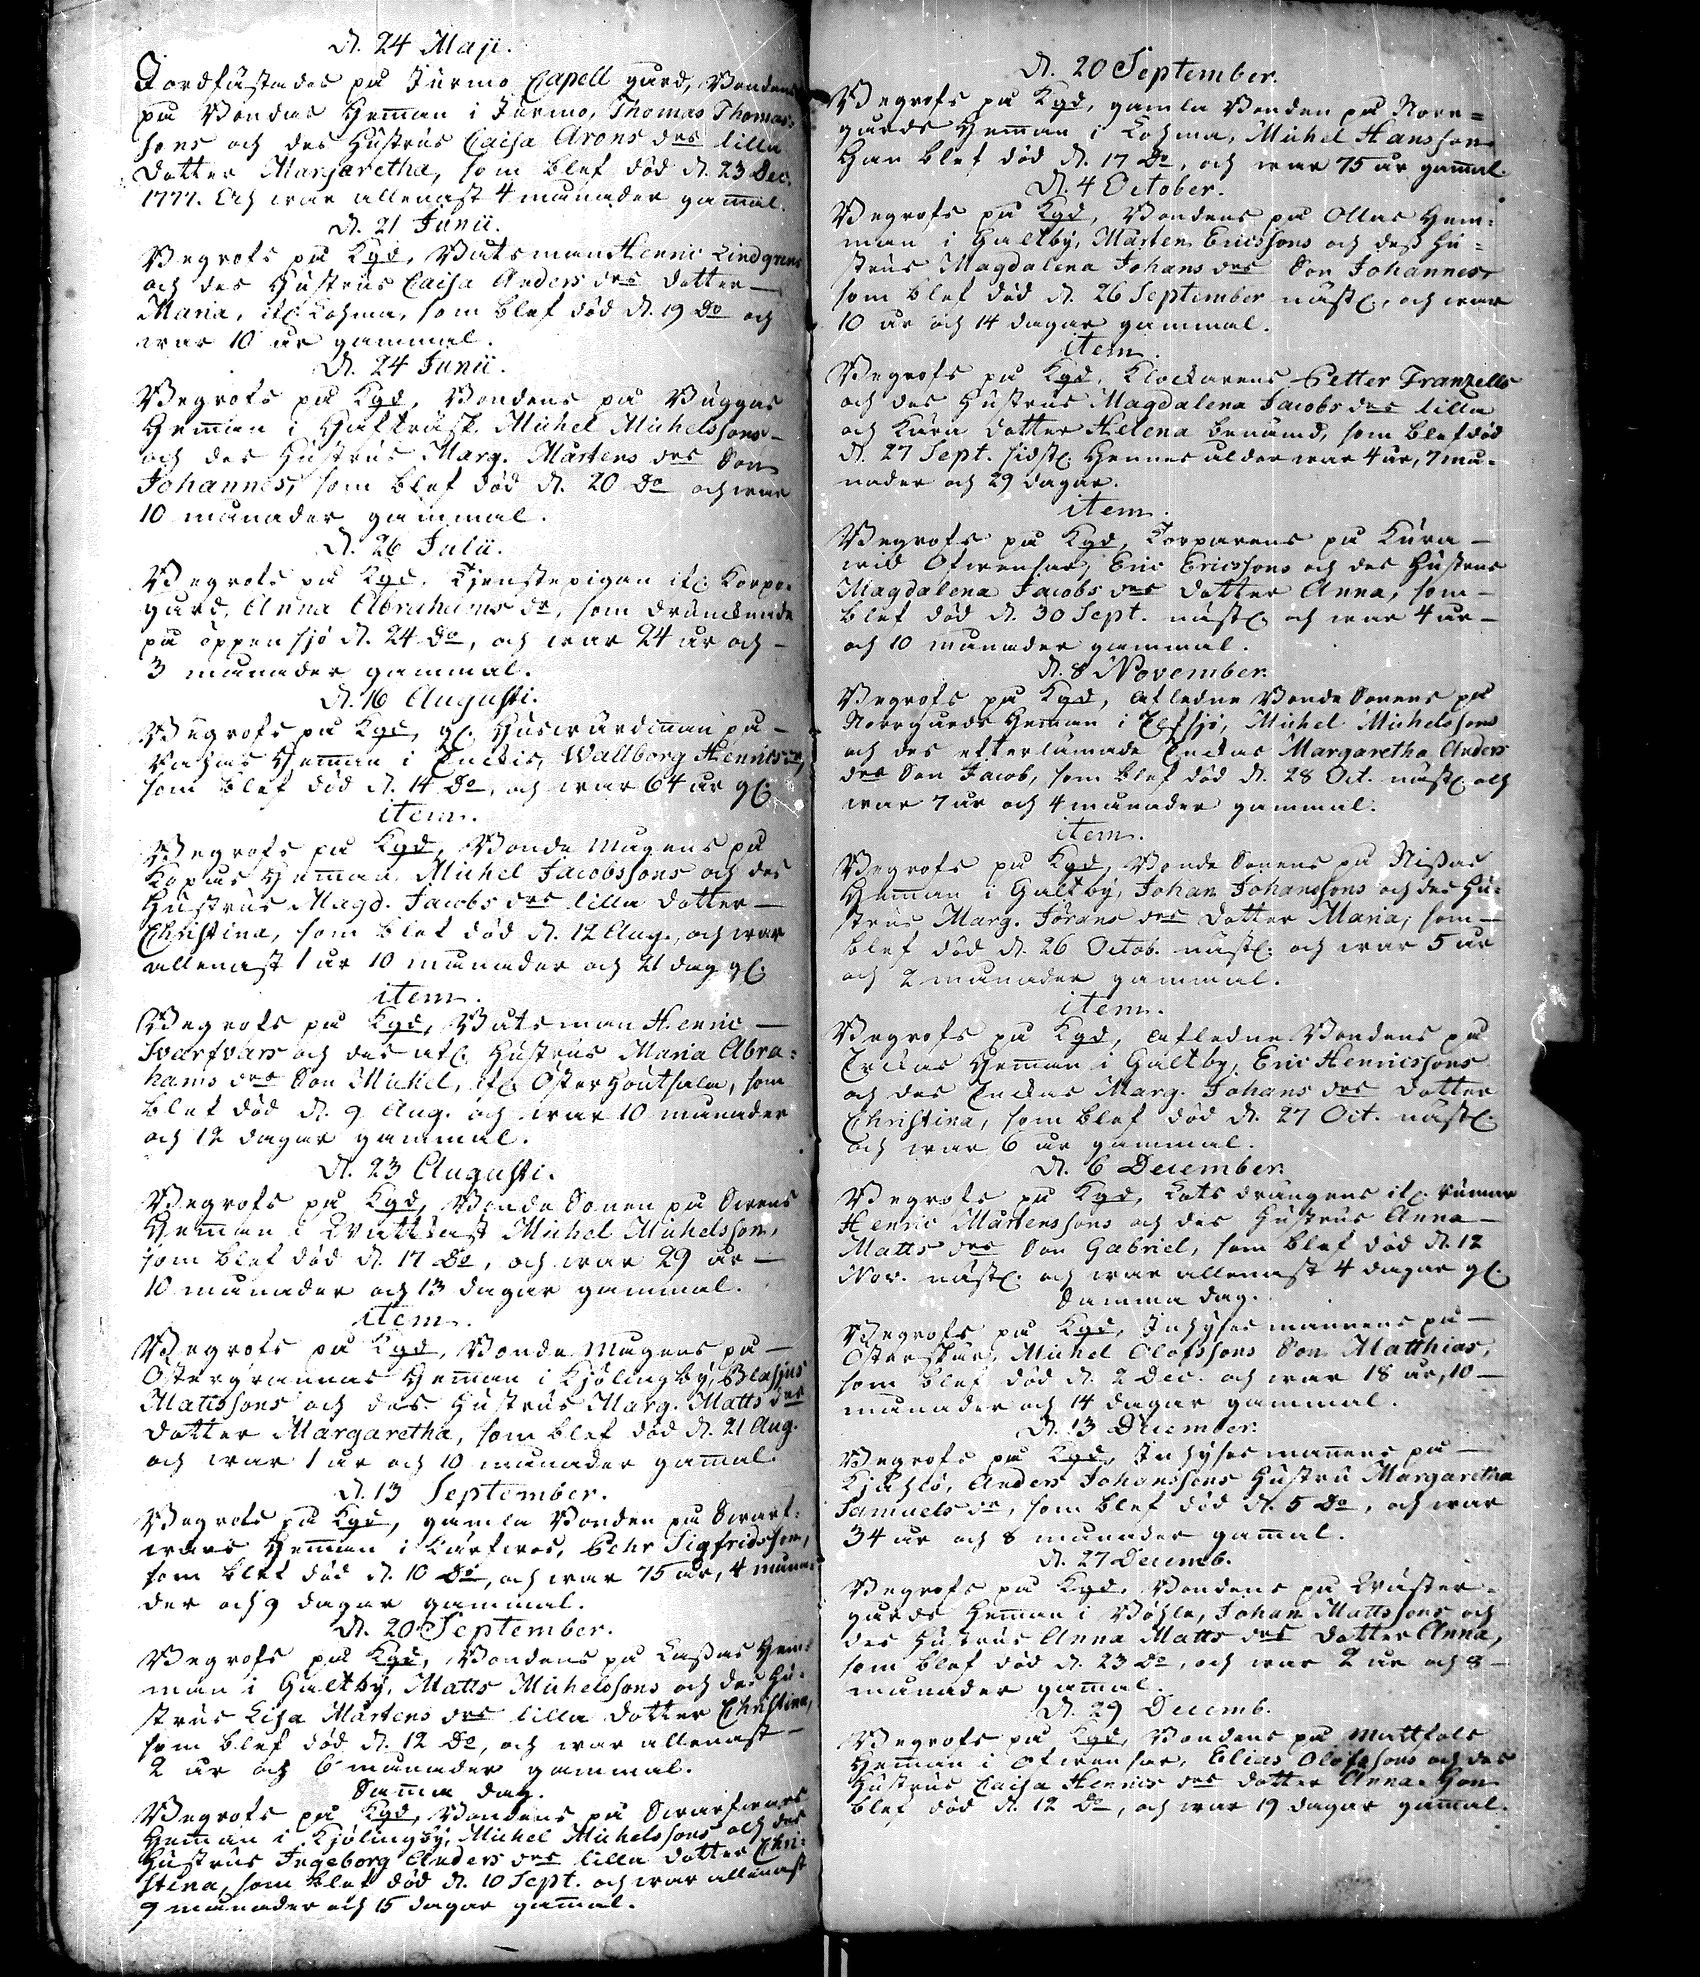 d. 24 Maji.
Jordfästades på Jurmo Capell gård, Bondens
på Bondas Hem̄an i Jurmo, Thomas Thomas-
sons och des Hustrus Caisa Arons drs lilla
dotter Margaretha, som blef död d. 23 Dec.
1777. Och war allenast 4 månader gam̄al.
d. 21 Junii.
Begrofs på Kgd, Båtsman Henric Lindgrens
och des Hustrus Caisa Anders drs dotter
Maria, ifr. Lohma, som blef död d. 19 Do och
war 10 år gammal.
d. 24 Junii.
Begrofs på Kgd, Bondens på Byggas
Hem̄an i Hafträsk, Michel Michelssons
och des Hustrus Marg. Mårtens drs Son
Johannes, som blef död d. 20 Do och war
10 månader gammal.
d. 26 Julii.
Begrofs på Kgd, Tjenstepigan ifr. Korpo-
gård, Anna Abrahams dr, som drunknade
på öppen sjö d. 24 Do, och war 24 år och
3 månader gammal.
d. 16 Augusti.
Begrofs på Kgd, gl. Huswärdinnan på
Hem̄an i Wallborg Henrics dr,
som blef död d. 14 Do, och war 64 år gl.
item.
Begrofs på Kgd, Bonde mågens på
Kopas Hem̄an Michel Jacobssons och des
Hustrus Magd. Jacobs drs lilla dotter
Christina, som blef död d. 12 Aug., och war
allenast 1 år 10 månader och 21 dag gl.
item.
Begrofs på Kgd, Båtsman Henric
Svarfvars och des afl. Hustrus Maria Abra-
hams drs Son Michel, ifr. Österhoutsala, som
blef död d. 9 Aug. och war 10 månader
och 12 dagar gammal.
d. 23 Augusti.
Begrofs på Kgd, Bonde Sonen på Swens
Hem̄an i Wattkast Michel Michelsson,
som blef död d. 17 Do, och war 29 år
10 månader och 13 dagar gammal.
item.
Begrofs på Kgd, Bonde mågens på
Östergrannas Hem̄an i Kjölingby, Blasjus
Mattssons och des Hustrus Marg. Matts drs
dotter Margaretha, som blef död d. 21 Aug.
och war 1 år och 10 månader gam̄al.
d. 13 September.
Begrofs på Kgd, gamla Bonden på Swarf-
wars Hem̄an i Pehr Sigfridsson,
som blef död d. 10 Do, och war 75 år, 4 måna-
der och 9 dagar gammal.
d. 20 September.
Begrofs på Kgd, Bondens på Lassas Hem-
man i Galtby, Matts Michelssons och des Hu-
strus Lisa Mårtens drs lilla dotter Christina,
som blef död d. 12 Do, och war allenast
2 år och 6 månader gammal.
Sam̄a dag.
Begrofs på Kgd, Bondens på Swarfwars
Hem̄an i Kjölingby, Michel Michelssons och des
Hustrus Ingeborg Anders drs lilla dotter Chri-
stina, som blef död d. 10 Sept. och war allenast
9 månader och 15 dagar gam̄al.
d. 20 September.
Begrofs på Kgd, gamla Bonden på Norr-
gårds Hem̄an i Lohma, Michel Hansson.
Han blef död d. 17 Do, och war 75 år gam̄al.
d. 4 October.
Begrofs på Kgd, Bondens på Ollas Hem-
man i Galtby, Mårten Ericssons och deß Hu-
strus Magdalena Johans drs Son Johannes,
som blef död d. 26 September nästl., och war
10 år och 14 dagar gammal.
item.
Begrofs på Kgd, Klockarens Petter Franzells
och des Hustrus Magdalena Jacobs drs lilla
och kära dotter Helena benämd, som blef död
d. 27 Sept. sidstl. Hennes ålder war 4 år, 7 må-
nader och 29 dagar.
item.
Begrofs på Kgd, Torparens på Kåra
wid Ofwensor, Eric Ericssons och des Hustrus
Magdalena Jacobs drs dotter Anna, som
blef död d. 30 Sept. nästl. och war 4 år
och 10 månader gammal.
d. 8 November.
Begrofs på Kgd, Afledne Bonde Sonens på
Norrgårds Hem̄an i Retsjö, Michel Michelssons
och des efterlämnade Enkas Margaretha Anders
drs Son Jacob, som blef död d. 28 Oct. nästl. och
war 7 år och 4 månader gammal.
item.
Begrofs på Kgd, Bonde Sonens på Nißas
Hem̄an i Galtby, Johan Johanssons och des Hu-
strus Marg. Jörans drs dotter Maria, som
blef död d. 26 Octob. nästl. och war 5 år
och 2 månader gammal.
item.
Begrofs på Kgd, Afledne Bondens på
Erckas Hem̄an i Galtby, Eric Henricssons
och des Enckas Marg. Johans drs dotter
Christina, som blef död d. 27 Oct. nästl.
och war 6 år gammal.
d. 6 December.
Begrofs på Kgd, Lots drängens ifr. Rumar
Henric Mårtenssons och des Hustrus Anna
Matts drs Son Gabriel, som blef död d. 12
Nov. nästl. och war allenast 4 dagar gl.
Samma dag.
Begrofs på Kgd, Inhyses mannens på
Österskär, Michel Olofssons Son Matthias,
som blef död d. 2 Dec. och war 18 år, 10
månader och 14 dagar gammal.
d. 13 December.
Begrofs på Kgd, Inhyses man̄ens på
Kjählö, Anders Johanssons Hustru Margaretha
Samuels dr, som blef död d. 5 Do, och war
34 år och 8 månader gam̄al.
d. 27 Decemb.
Begrofs på Kgd, Bondens på Wäster-
gårds Hem̄an i Böhle, Johan Mattssons och
des Hustrus Anna Matts drs dotter Anna,
som blef död d. 23 Do, och war 2 år och 8
månader gam̄al.
d. 29 Decemb.
Begrofs på Kgd, Bondens på Mattfols
Hem̄an i Ofwensor, Elias Olofssons och des
Hustrus Caisa Henrics drs dotter Anna. Hon
blef död d. 12 Do, och war 19 dagar gam̄al.